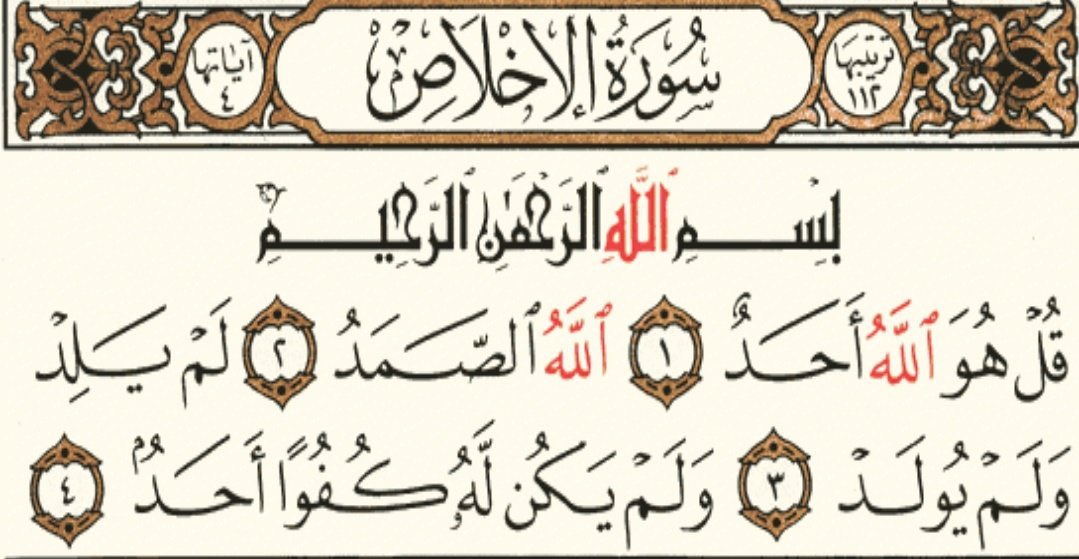 ترتيبها ١١٢ سُورَةُ الإِخْلَاصِ آيَاتُهَا ٤
بِسْمِ ٱللَّهِ ٱلرَّحْمَٰنِ ٱلرَّحِيمِ
قُلْ هُوَ ٱللَّهُ أَحَدٌ ١ ٱللَّهُ ٱلصَّمَدُ ٢ لَمْ يَلِدْ
وَلَمْ يُولَدْ ٣ وَلَمْ يَكُن لَّهُۥ كُفُوًا أَحَدٌۢ ٤